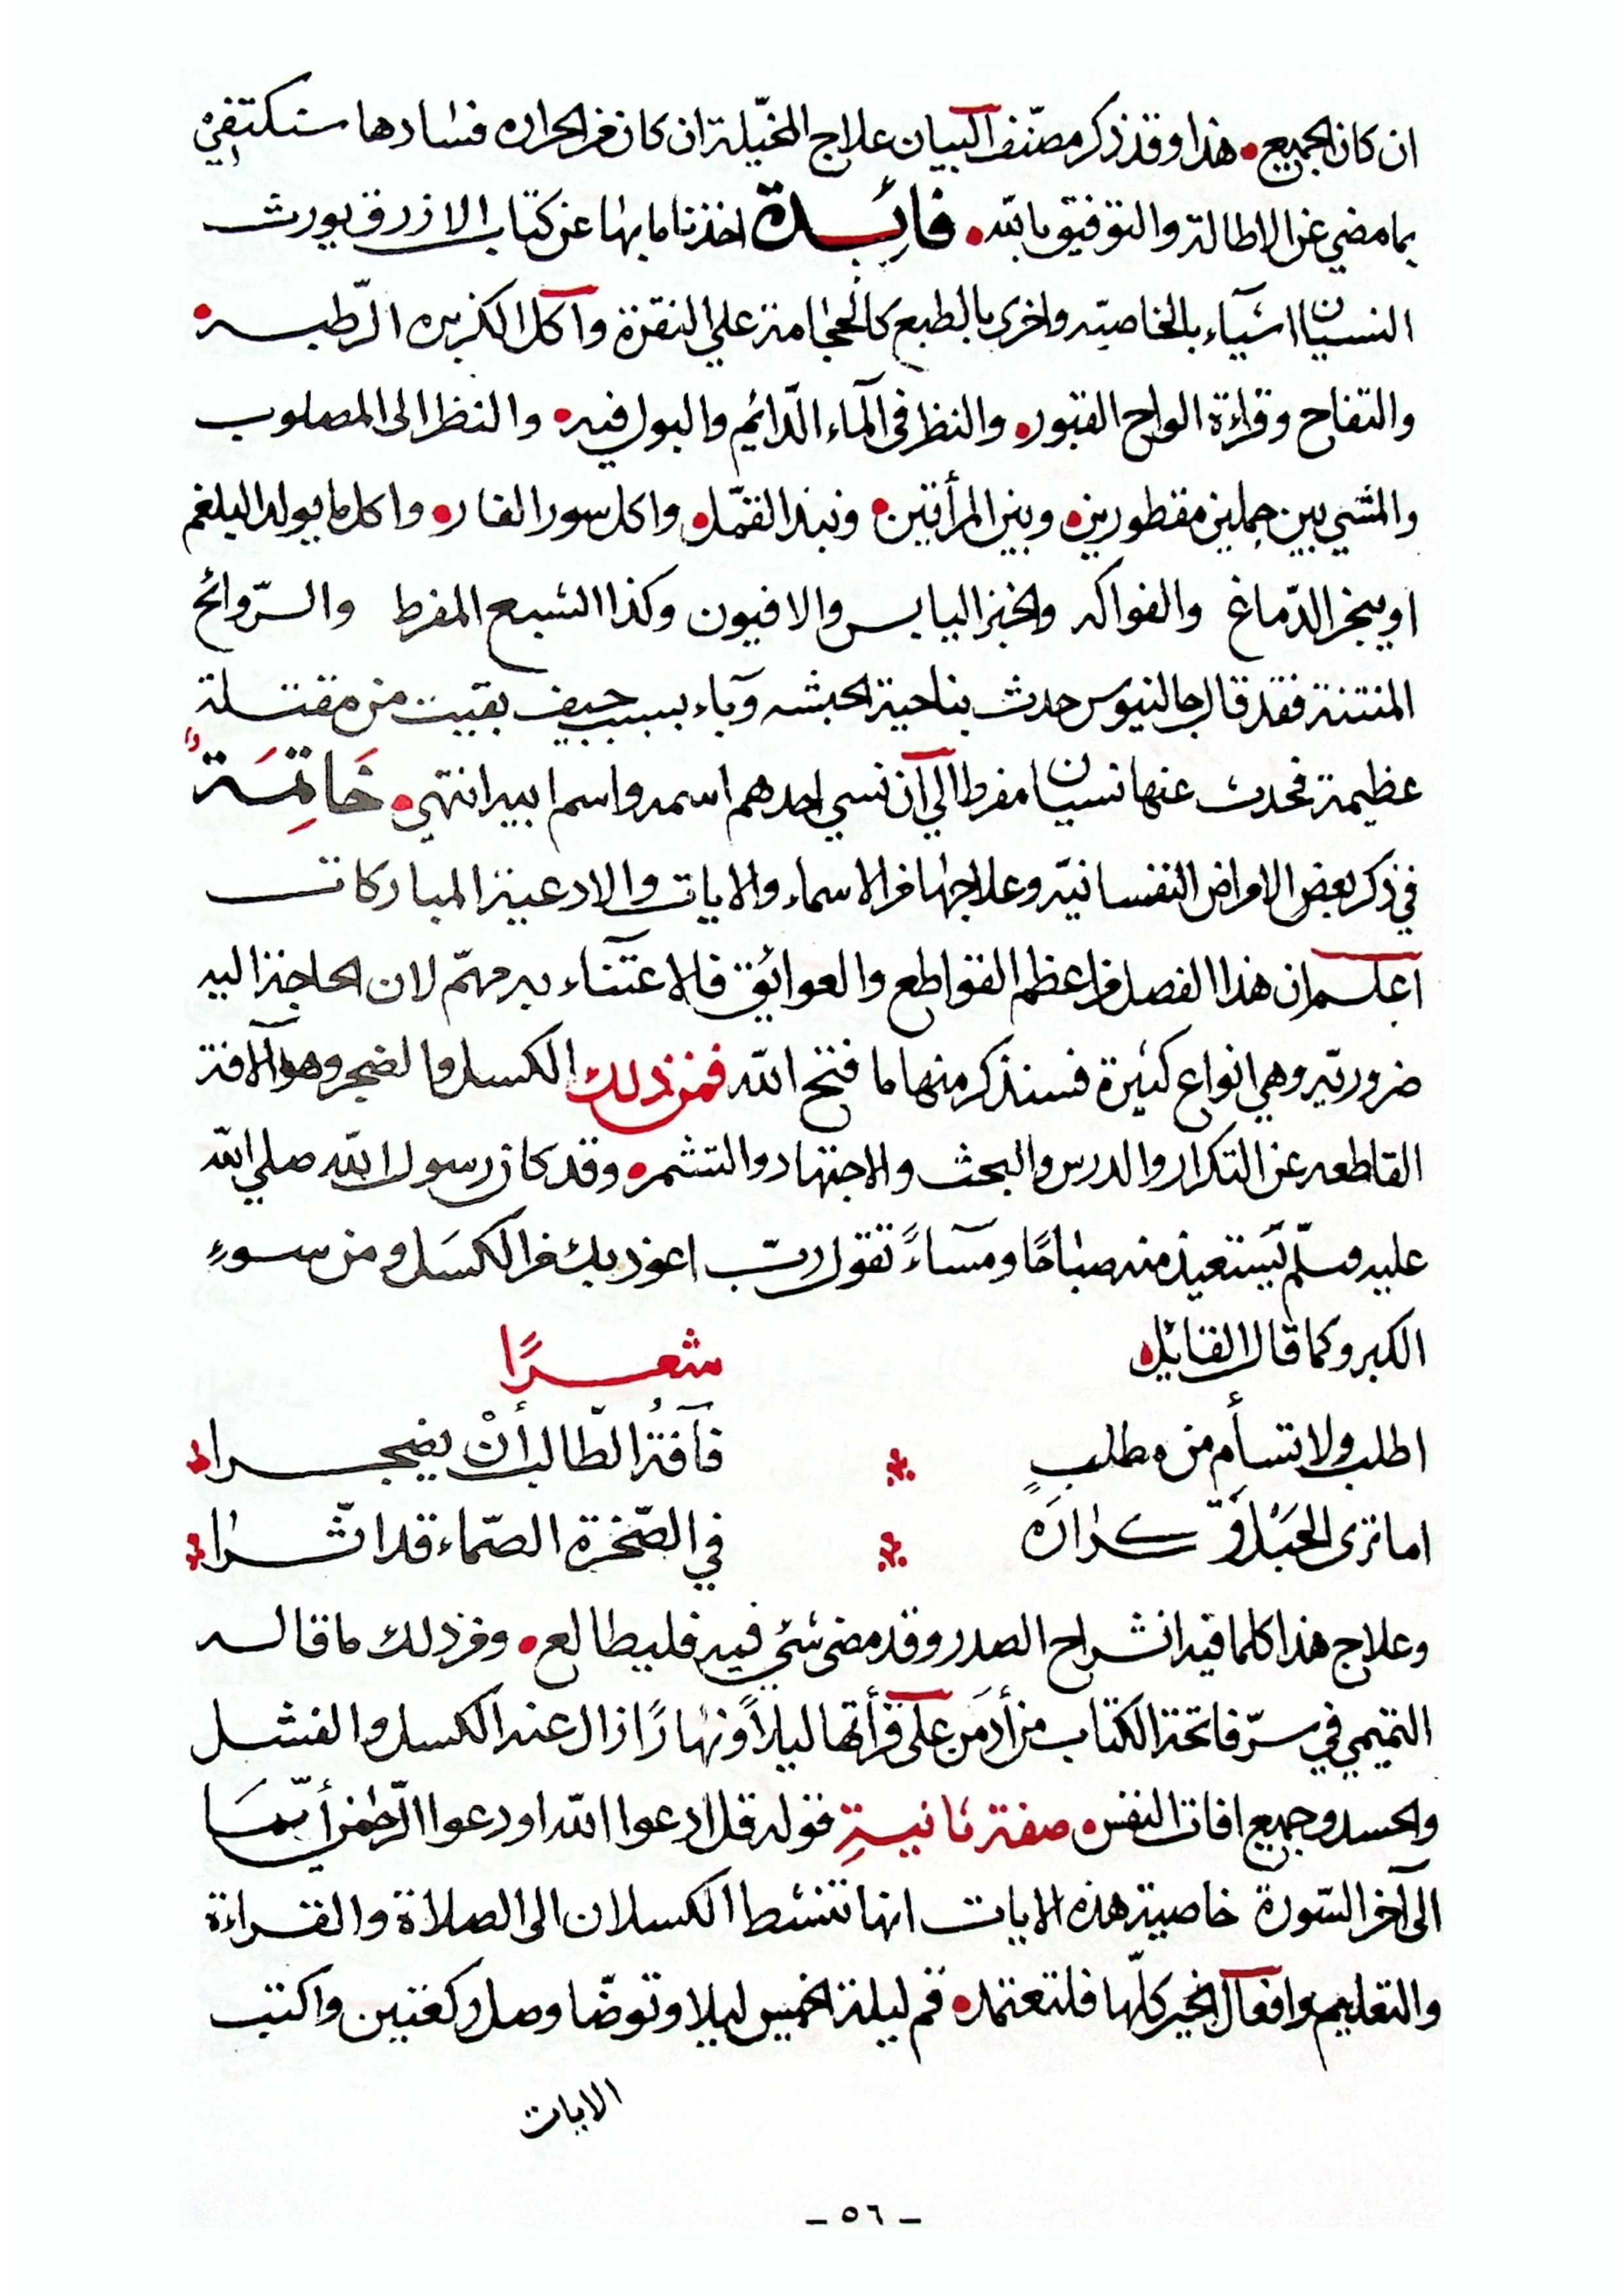 ان كان الجميع • هذا وقد ذكر مصنّف البيان علاج المخيّلة ان كان من الحراره فسادها سنكتفي
بما مضي عن الاطالة والتوفيق بالله • فائِدة اخذنا ما بها عن كتاب الازرق يورث
النسيان اشيآء بالخاصيّه واخرى بالطبع كالحجامة علي النقرة واكل الكزبره الرّطبه •
والتفاح وقراءة الواح القبور • والنظر في المآء الدّائم والبول فيه • والنظر الى المصلوب
والمشي بين جملين مقطورين • وبين المرأتين • ونبذ القمّل • واكل سور الفار • واكل ما يولد البلغم
او يبخر الدّماغ والفواكه والخبز اليابس والافيون وكذا الشبع المفرط والرّوائح
المنتنة فقد قال جالنيوس حدث بناحية الحبشه وبآء بسبب جيف بقيت من مقتلة
عظيمة فحدث عنها نسيان مفرط الي ان نسي احدهم اسمه واسم ابيه انتهي • خَاتِمَة
في ذكر بعض الامراض النفسانيّه وعلاجها من الاسماء والايات والادعية المباركات
اعلم ان هذا الفصل من اعظم القواطع والعوائق فالاعتنآء به مهمّ لان الحاجة اليه
ضروريّه وهي انواع كثيرة فسنذكر منها ما فتح الله فمن ذلك الكسل والضجر وهو الآفة
القاطعه عن التكرار والدرس والبحث والاجتهاد والتشمر • وقد كان رسول الله صلي الله
عليه وسلّم يَستعيذ منه صباحًا ومسآءً تقول ربّ اعوذ بك من الكسَل ومن سوءِ
الكبر وكما قال القايل • شعرًا
اطلب ولا تسأم من مطلبٍ ⁂ فآفةُ الطّالب أنْ يضجرا
اما ترى الحَبْل وَتكرارَه ⁂ في الصّخرة الصّماء قد اثّرا
وعلاج هذا كلما فيه انشراح الصدر وقد مضى شئ فيه فليطالع • ومن ذلك ما قاله
التميمي في سرّ فاتحة الكتاب من أدمَن علَى قرأتها ليلاً ونهارًا زال عنه الكسل والفشل
والحسد وجميع افات النفس • صفة ثانيةِ قوله قل ادعوا الله او دعوا الرّحمن أيّمَا
الى آخر السّورة خاصية هذه الايات انها تنشط الكسلان الى الصلاة والقراءة
والتعليم وافعال الخير كلّها فلتعتمد • قم ليلة الخميس ليلا وتوضّا وصل ركعتين واكتب
الايات
_ ٥٦ _